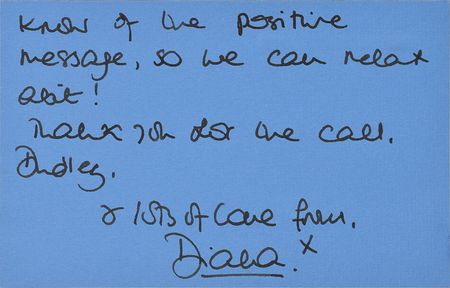 know of the positive
message, so we can relax
abit!
Thank you for the call,
Dudley,
& lots of love from,
Diana. x